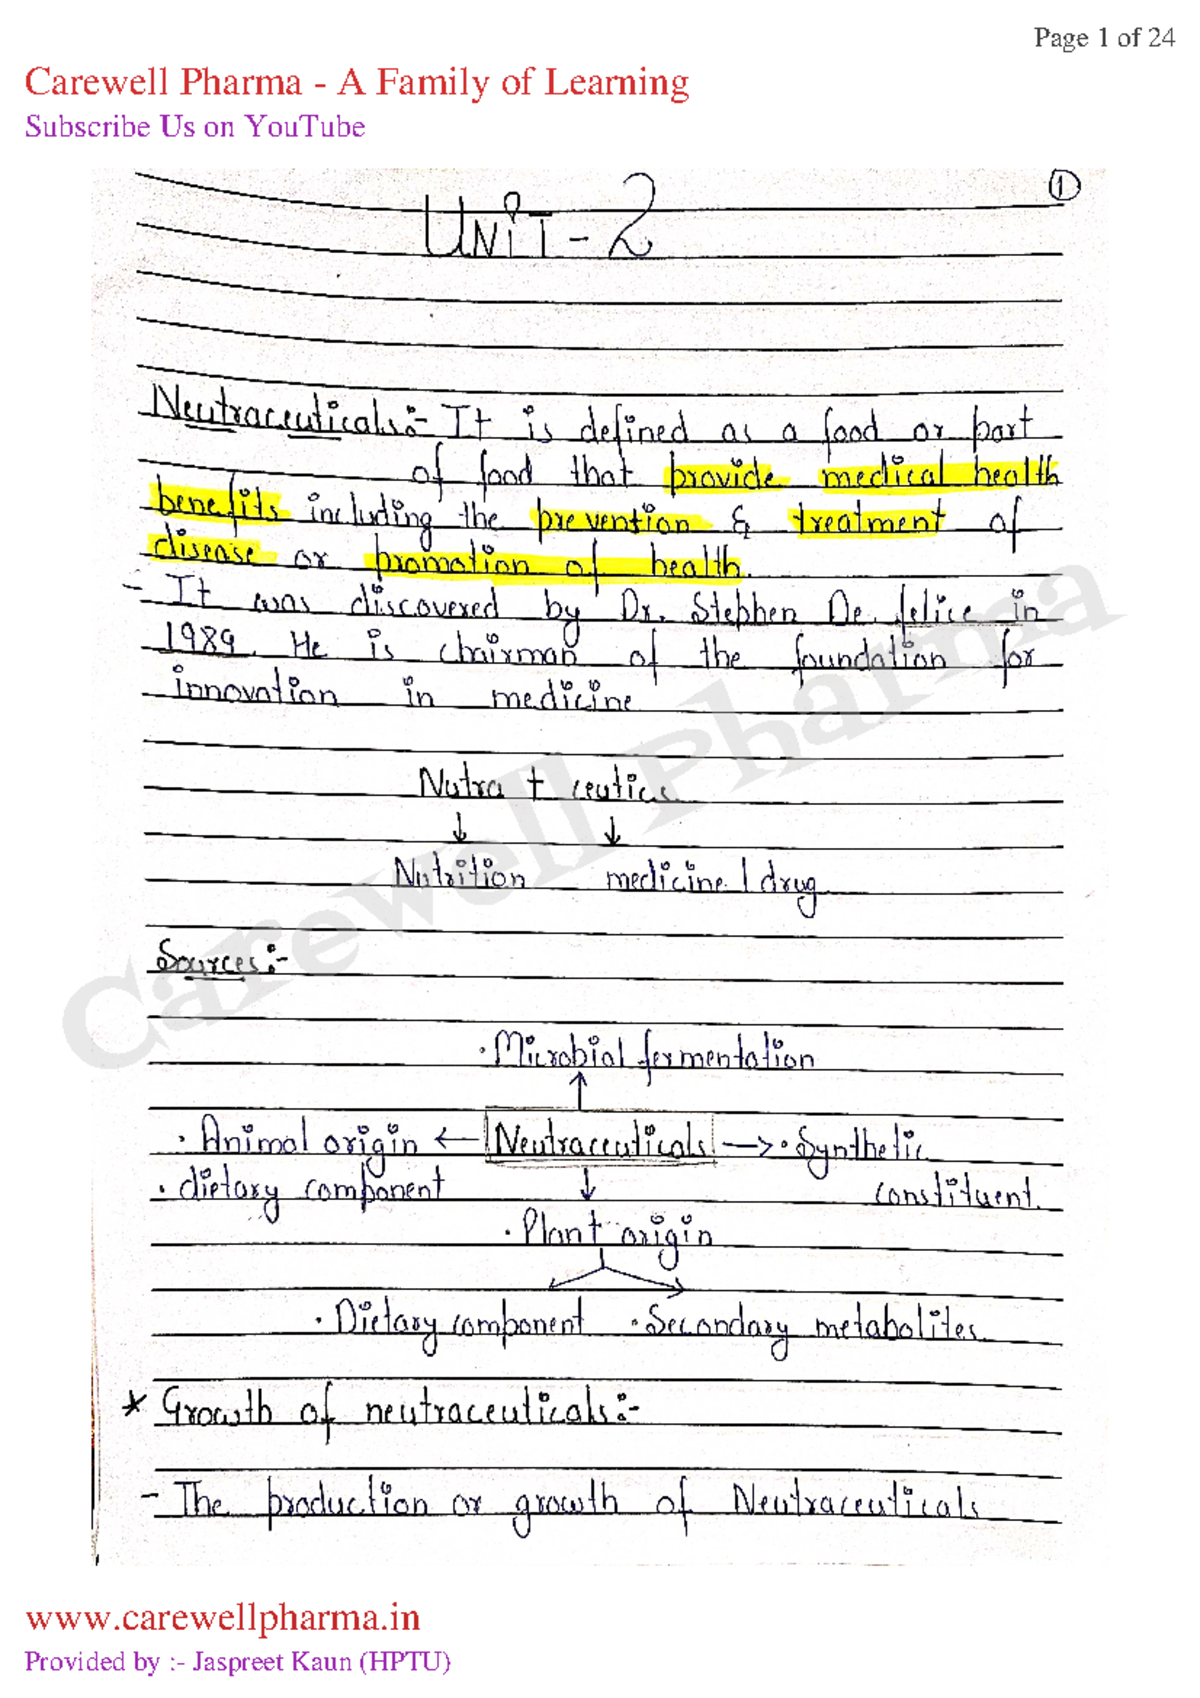 Page 1 of 24
Carewell Pharma - A Family of Learning
Subscribe Us on YouTube
1
UNiT - 2
Neutraceuticals:- It is defined as a food or part
of food that provide medical health
benefits including the prevention & treatment of
disease or promotion of health.
- It was discovered by Dr. Stephen De. felice in
1989. He is chairman of the foundation for
innovation in medicine
Nutra + ceutics
↓ ↓
Nutrition medicine / drug
Sources:-
· Microbial fermentation
↑
· Animal origin ← Neutraceuticals → · Synthetic
· dietary component ↓ constituent.
· Plant origin
· Dietary component · Secondary metabolites
* Growth of neutraceuticals:-
- The production or growth of Neutraceuticals
Carewell Pharma
www.carewellpharma.in
Provided by :- Jaspreet Kaun (HPTU)